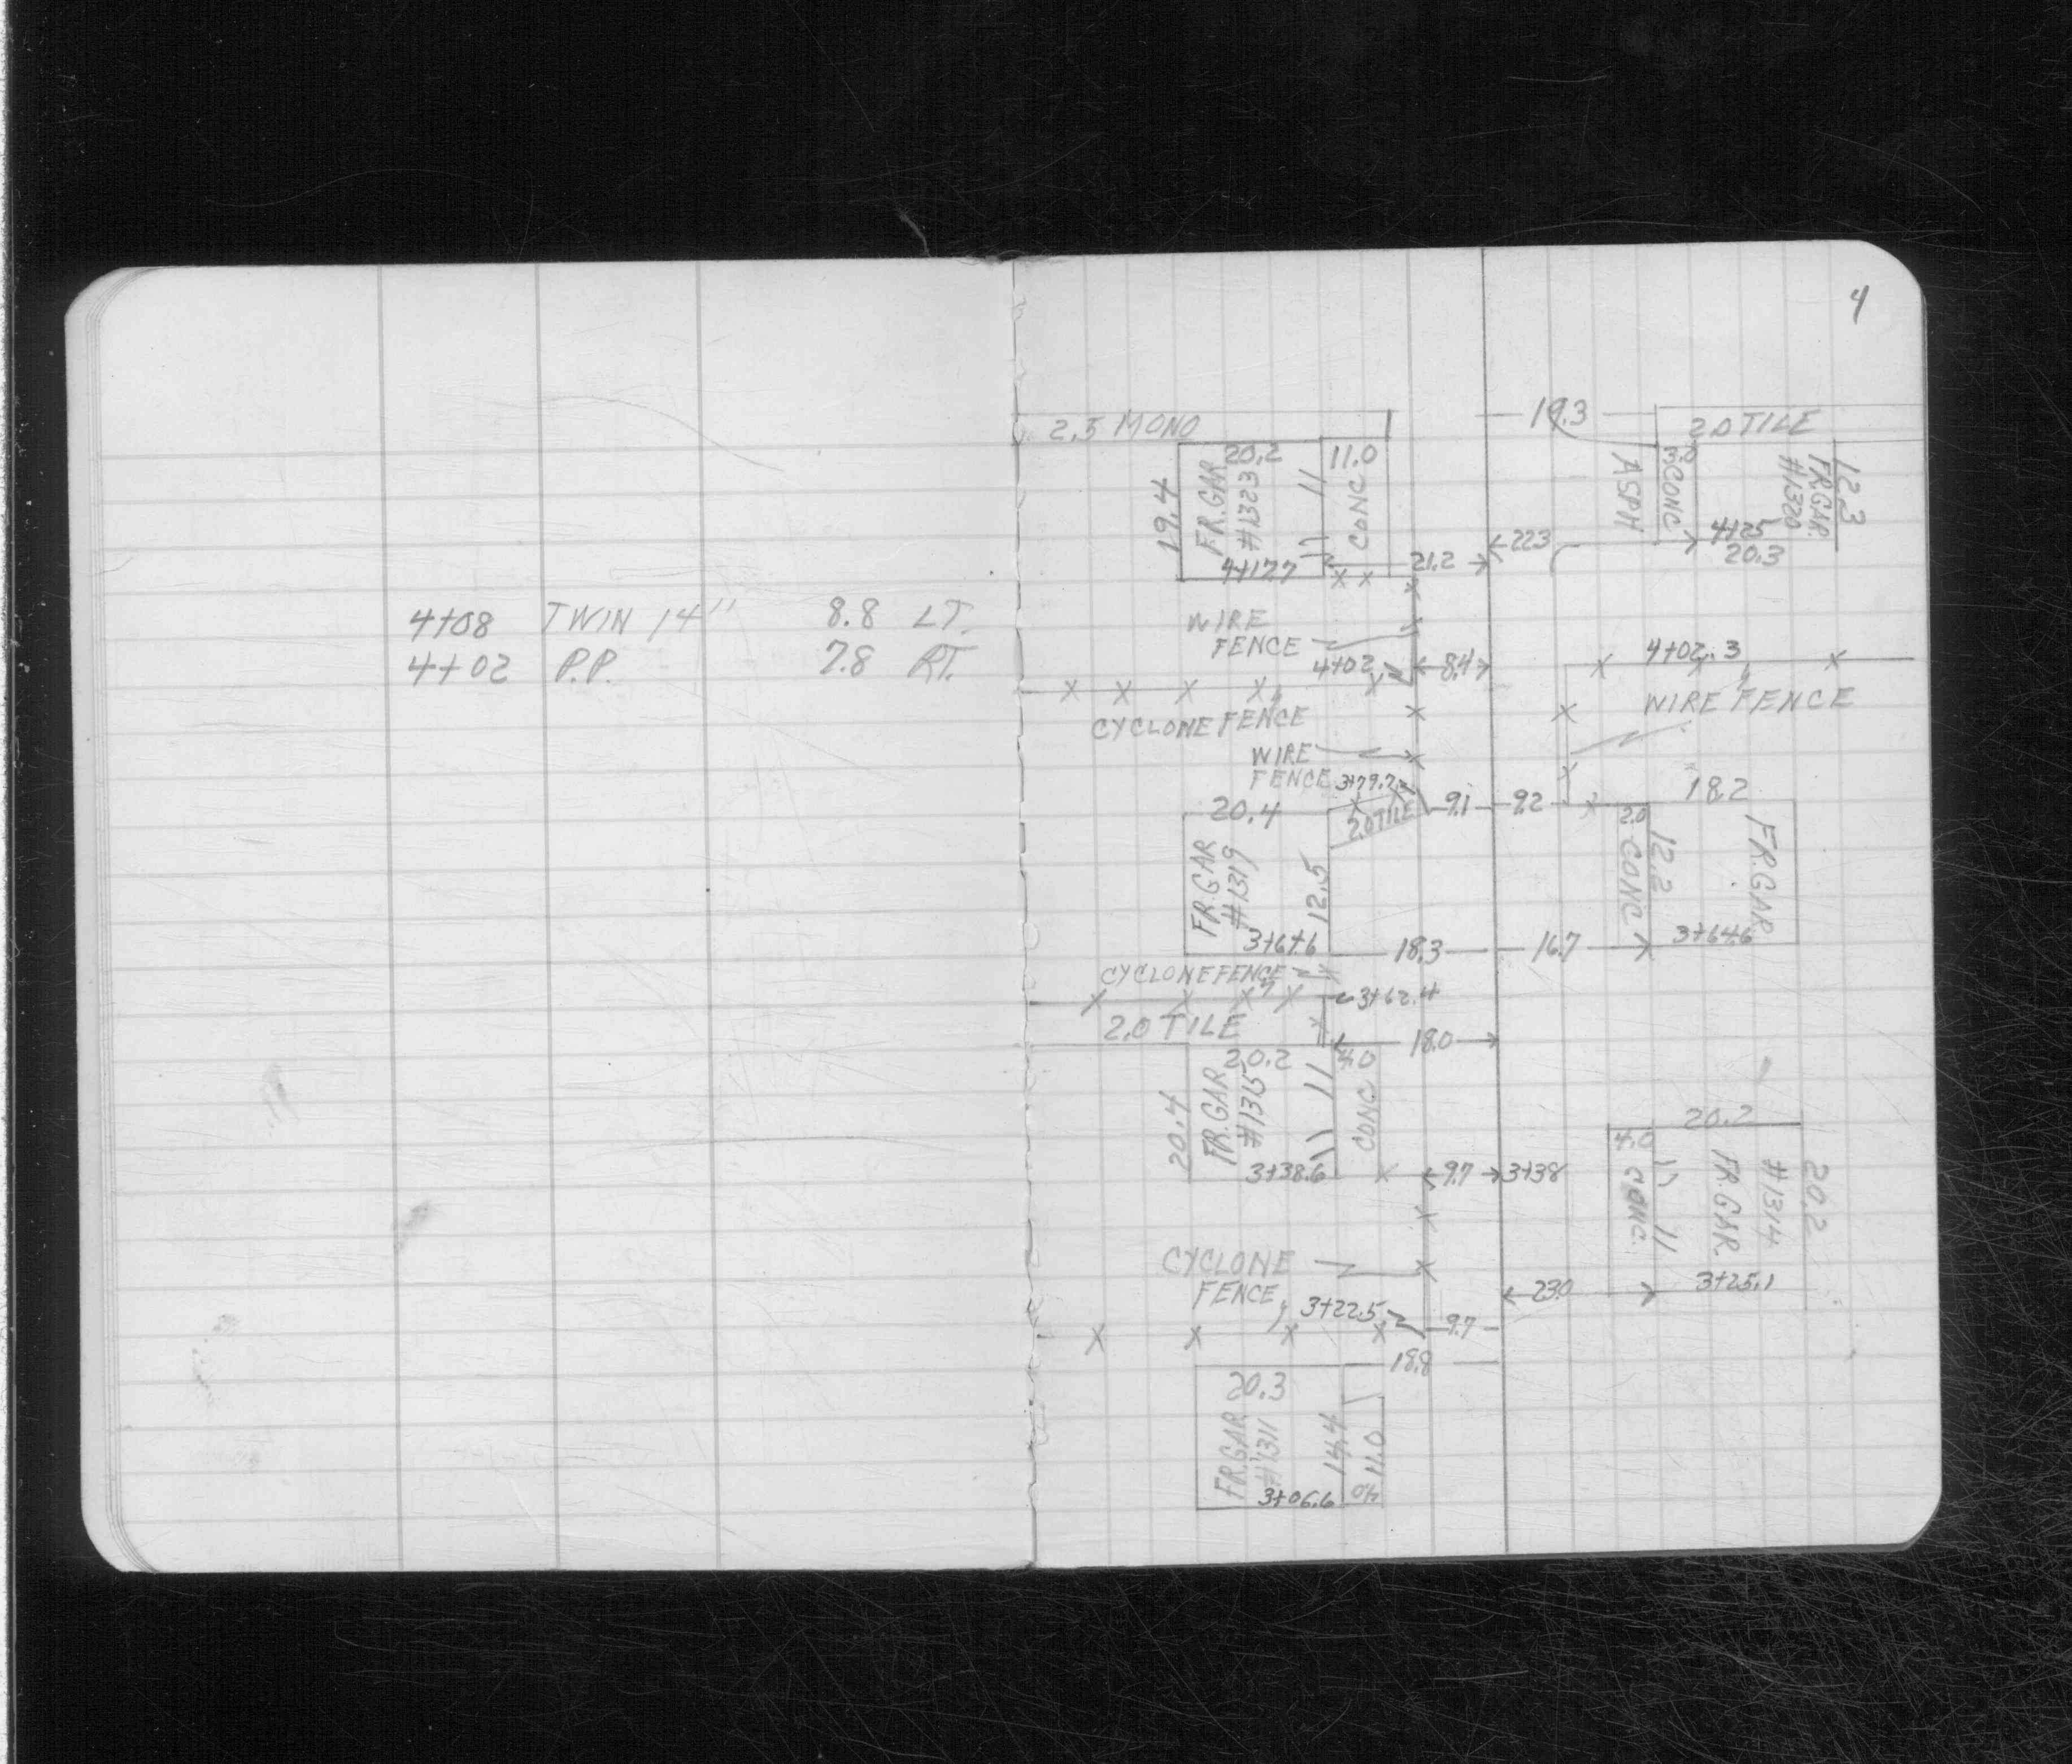 4
4+08 TWIN 14" 8.8 LT.
4+02 P.P. 7.8 RT.
2.5 MONO
19.3
2.0 TILE
20.2
11.0
3.0
19.4
FR. GAR
#1323
CONC
ASPH
CONC
#1320
FR.GAR.
12.3
4+12.7
21.2
22.3
4+25
20.3
WIRE
FENCE
4+02
8.4
4+02.3
WIRE FENCE
CYCLONE FENCE
WIRE
FENCE
3+79.7
20.4
2.0 TILE
9.1
9.2
18.2
2.0
FR.GAR
#1319
12.5
CONC
12.2
FR.GAR
18.3
16.7
3+64.6
CYCLONE FENCE
3+62.4
2.0 TILE
18.0
20.2
4.0
20.4
FR.GAR
#1315
CONC
3+38.6
9.7
3+38
20.2
4.0
CONC.
FR.GAR.
#1314
20.2
CYCLONE
FENCE
3+22.5
23.0
3+25.1
9.7
18.8
20.3
FR.GAR
#1311
14.4
11.0
3+06.6